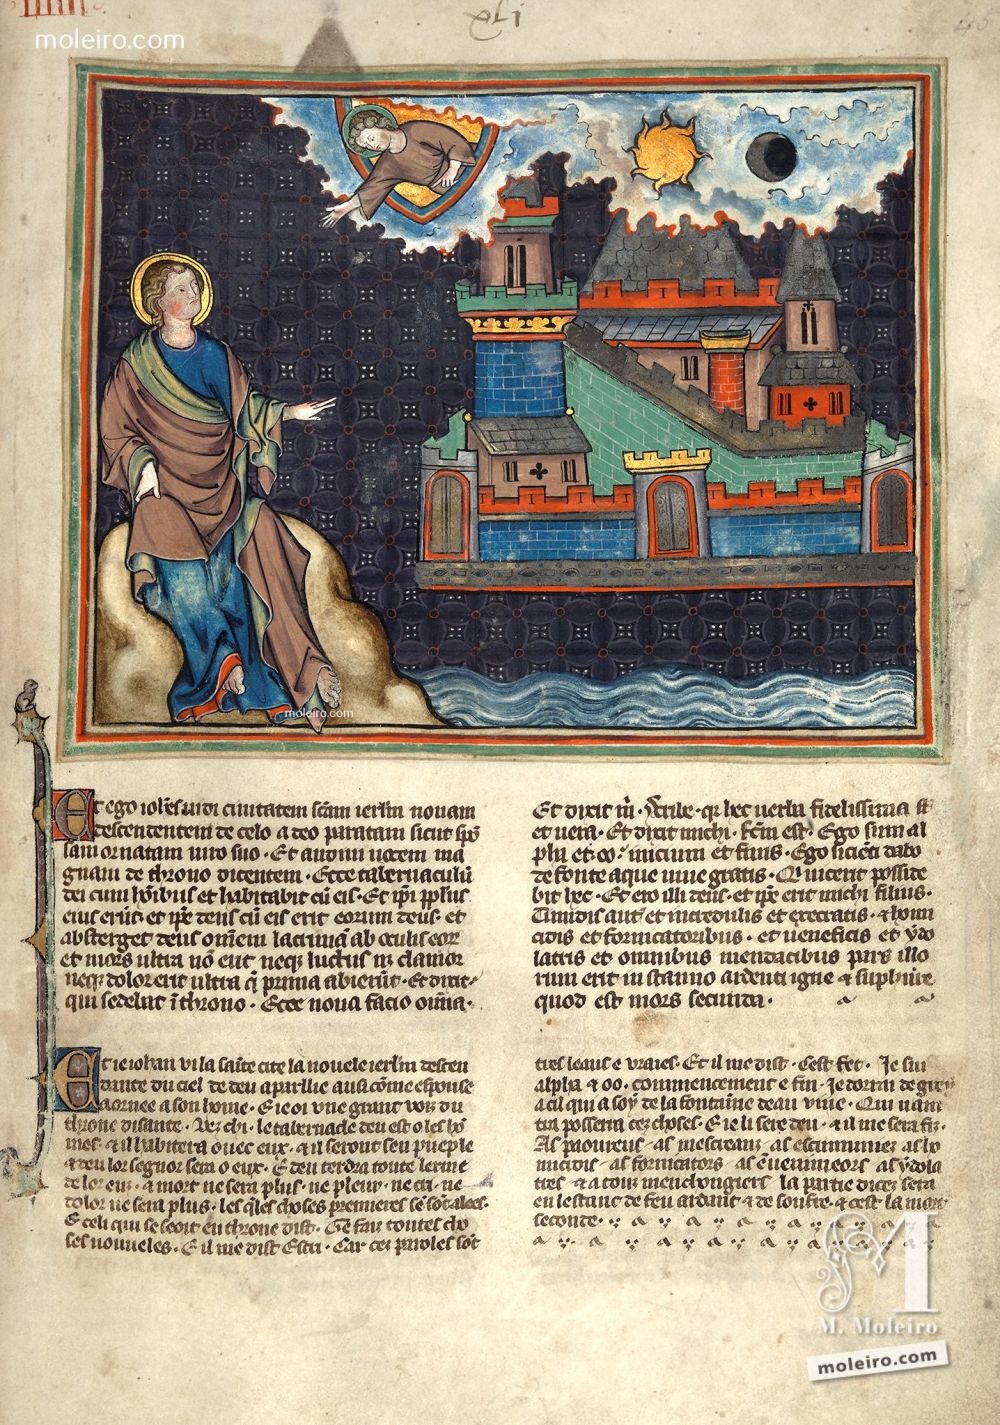 xli
moleiro.com
Et ego ioh'es uidi ciuitatem sc̄am ierlm nouam
descendentem de celo a deo paratam sicut spō
sam ornatam uiro suo · Et audiui uocem ma
gnam de throno dicentem · Ecce tabernaculū
dei cum hōibus et habitabit cū eis · Et ip̄i pplus
eius erūt · et ip̄e deus cū eis erit eorum deus · et
absterget deus omnem lacrimā ab oculis eor
et mors ultra nō erit neq; luctus neq; clamor
neq; dolor erit ultra q̄ prima abierūt · Et dixit
qui sedebat ī throno · Ecce noua facio omīa ·
Et dixit m̄ · Scribe · qr hec uerba fidelissima st̄
et uera · Et dixit michi · fc̄m est · Ego sum al
pha et oo · inicium et finis · Ego sicienti dabo
de fonte aque uiue gratis · Qi uicerit posside
bit hec · Et ero illi deus · et ip̄e erit michi filius ·
Timidis aut̄ et incredulis et execratis · & homi
cidis et fornicatoribus · et ueneficis et ydo
latris et omnibus mendacibus pars illo
rum erit in stanno ardenti igne & sulphure
quod est mors secunda ·
Et ie iohan vi la sainte cite la nouele ierlm descen
dante du ciel de deu aparillie ausi cōme espouse
aornee a son home · E ie oi vne grant voiz du
throne disante · Vez chi · le tabernacle deu est o les hō
mes · & il habitera ouec eux · & il seront seu pueple
& deu lor segnor sera o eux · E deu terdra toute lerme
de lor euz · & mort ne sera plus · ne pleur · ne cri · ne
dolor ne sera plus · les q̄les choses premieres se sōt alees ·
E celi qui se seoit en throne dist · Ge faz toutes cho
ses nouueles · E il me dist Escri · Car cez paroles sōt
tres leaus e vraies · Et il me dist · Cest fet · Je sui
alpha & oo · commencement e fin · Je dorrai de gre
a cil qui a soy de la fontaine deau viue · Qui
tra possera cez choses · E ie li sere deu · & il me sera fiz ·
As pooureus · as mescreanz · as escumniez · as ho
micides · as fornicators · as enuenimeors · as ydola
tres · & a touz mençongiers la partie dicez sera
en lestanc de feu ardant · & de soufre · & cest la mort
seconde ·
moleiro.com
M
M. Moleiro
moleiro.com